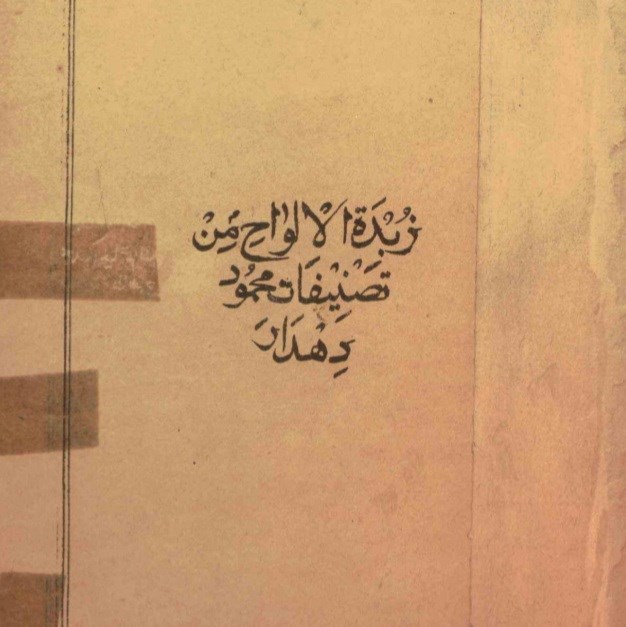 زُبْدَة الالواحِ مِنْ
تصَنِيْفَات محمُود
دِهْدَار